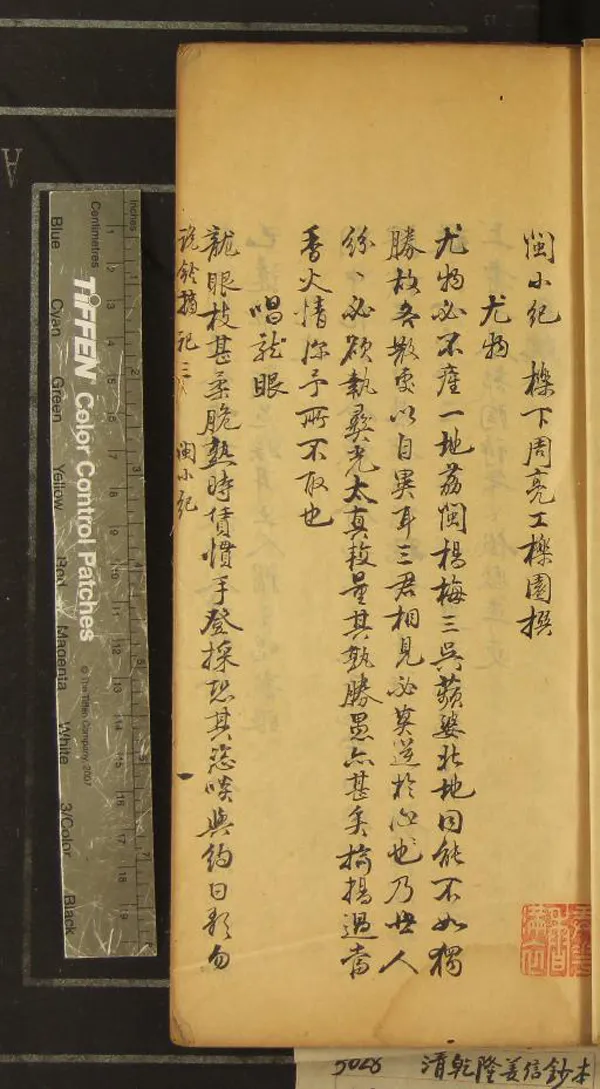 閩小紀 櫟下周亮工櫟園撰
尤物
尤物必不產一地荔閩楊梅三吳蘋婆北地因能不如獨
勝故各散處以自異耳三君相見必莫逆於心也乃世人
紛〻必欲執彜光太真較量其孰勝愚亦甚矣揄揚過當
香火情深予所不取也
唱龍眼
龍眼枝甚柔脆熟時賃慣手登採恐其恣啖與約曰歌勿
說鈴摘記三 閩小紀 一
5028 清乾隆姜信鈔本
Inches
Centimetres
TIFFEN Color Control Patches
© The Tiffen Company, 2007
Blue Cyan Green Yellow Red Magenta White 3/Color Black
A